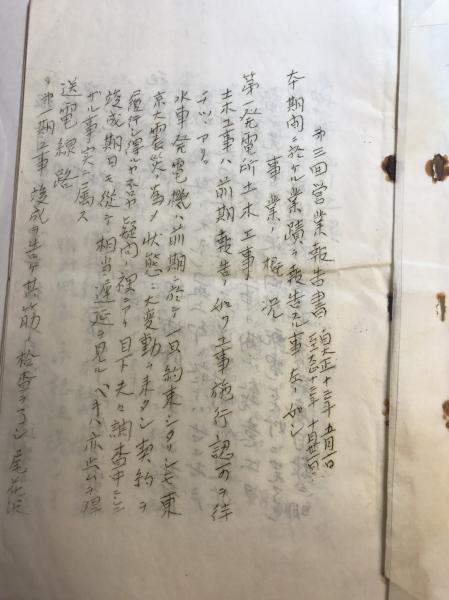 第三回営業報告書 自大正十二年五月一日 至大正十二年十月卅一日
本期間ニ於ケル業蹟ヲ報告スル事左ノ如シ
事業ノ概況
第一発電所土木工事
土木工事ハ前期報告ノ如ク工事施行認可ヲ待
チツツアリ
水車発電機ハ前期ニ於テ一旦約束シタリシモ東
京大震災ノ為メ状態ニ大変動ヲ来タシ契約ヲ
履行シ得ルヤ否ヤ疑問ノ裡ニアリ目下夫々調査中ニシテ
竣成期日モ従テ相当遅延ヲ見ルベキハ亦止ムヲ得
ザル事実ニ属ス
送電線路
第一期工事竣成ヲ告ゲ其筋ノ検査ヲ了シ尾花沢